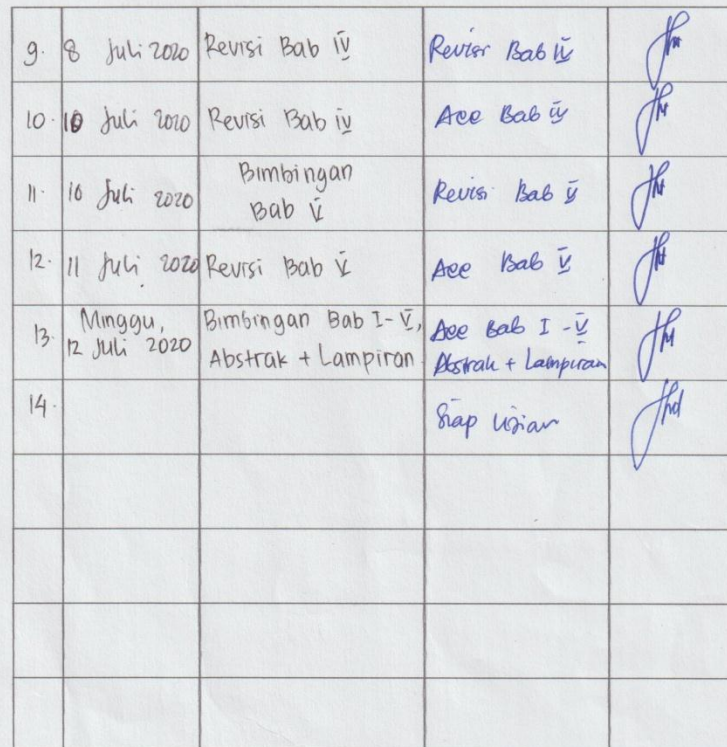 9. 8 Juli 2020 Revisi Bab IV Revisi Bab IV
10. 10 Juli 2020 Revisi Bab IV Acc Bab IV
11. 10 Juli 2020 Bimbingan Bab V Revisi Bab V
12. 11 Juli 2020 Revisi Bab V Acc Bab V
13. Minggu, 12 Juli 2020 Bimbingan Bab I - V, Abstrak + Lampiran Acc Bab I - V Abstrak + Lampiran
14. Siap Ujian